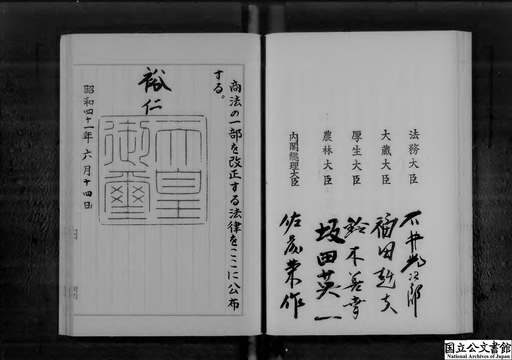 法務大臣 石井光次郎
大蔵大臣 福田赳夫
厚生大臣 鈴木善幸
農林大臣 坂田英一
内閣総理大臣 佐藤栄作
商法の一部を改正する法律をここに公布
する。
裕仁
天皇
御璽
昭和四十一年六月十四日
国立公文書館
National Archives of Japan